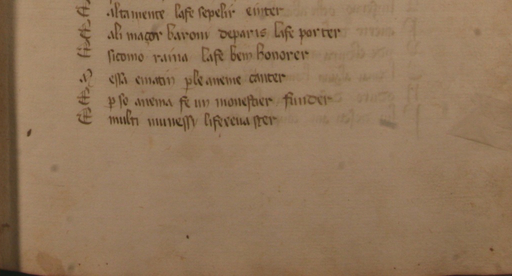 altamente lase sepelir ent͛er
ali maçor baroni de paris lase porter
sicomo raina lase ben honorer
essa ematin p le aneme canter
p so anema fe un monestier funder
multi munessi li fe reua ster